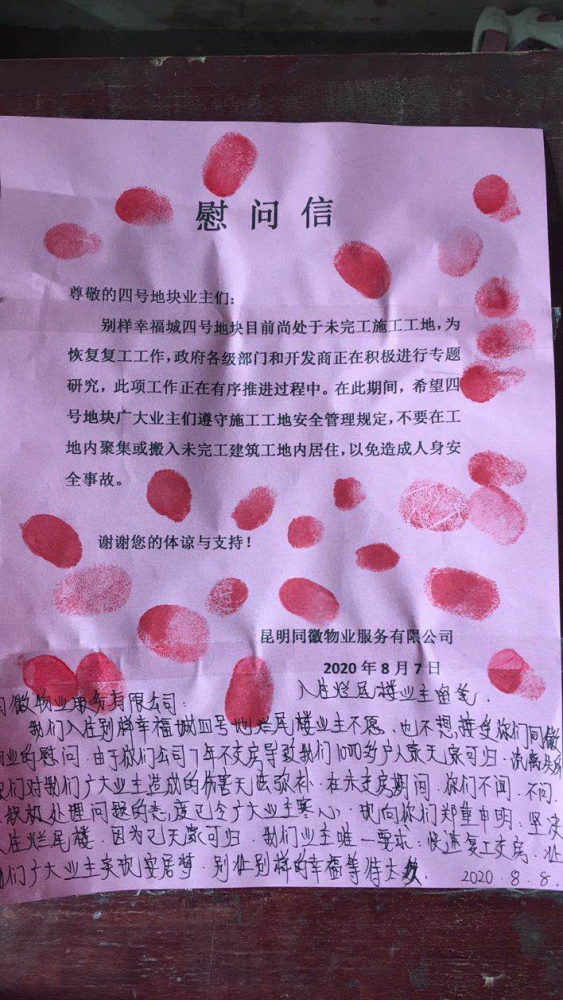 慰问信
尊敬的四号地块业主们：
别样幸福城四号地块目前尚处于未完工施工工地，为
恢复复工工作，政府各级部门和开发商正在积极进行专题
研究，此项工作正在有序推进过程中。在此期间，希望四
号地块广大业主们遵守施工工地安全管理规定，不要在工
地内聚集或搬入未完工建筑工地内居住，以免造成人身安
全事故。
谢谢您的体谅与支持！
昆明同徽物业服务有限公司
2020年8月7日
入住烂尾楼业主留笔.
同徽物业服务有限公司：
我们入住别样幸福城四号地烂尾楼业主不愿、也不想接受你们同徽
物业的慰问.由于你们公司7年不交房导致我们1000多户人家无家可归.
你们对我们广大业主造成的伤害无法弥补.在未交房期间.你们不闻.不问.
处理问题的态度已令广大业主寒心,现向你们郑重申明:坚决
入住烂尾楼.因为已无家可归.我们业主唯一要求:快速复工交房.让
我们广大业主实现安居梦.别让别样的幸福等待太久. 2020.8.8.